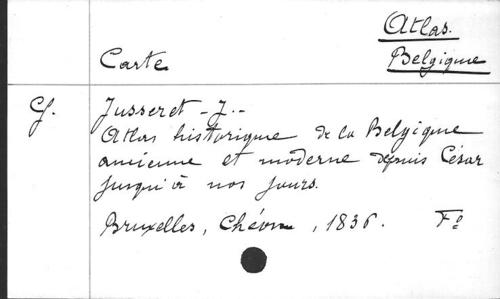 Atlas.
Belgique
Carte
Cf. Jusseret - J. -
Atlas historique de la Belgique
ancienne et moderne depuis César
jusqu'à nos jours.
Bruxelles, , 1836. Fº